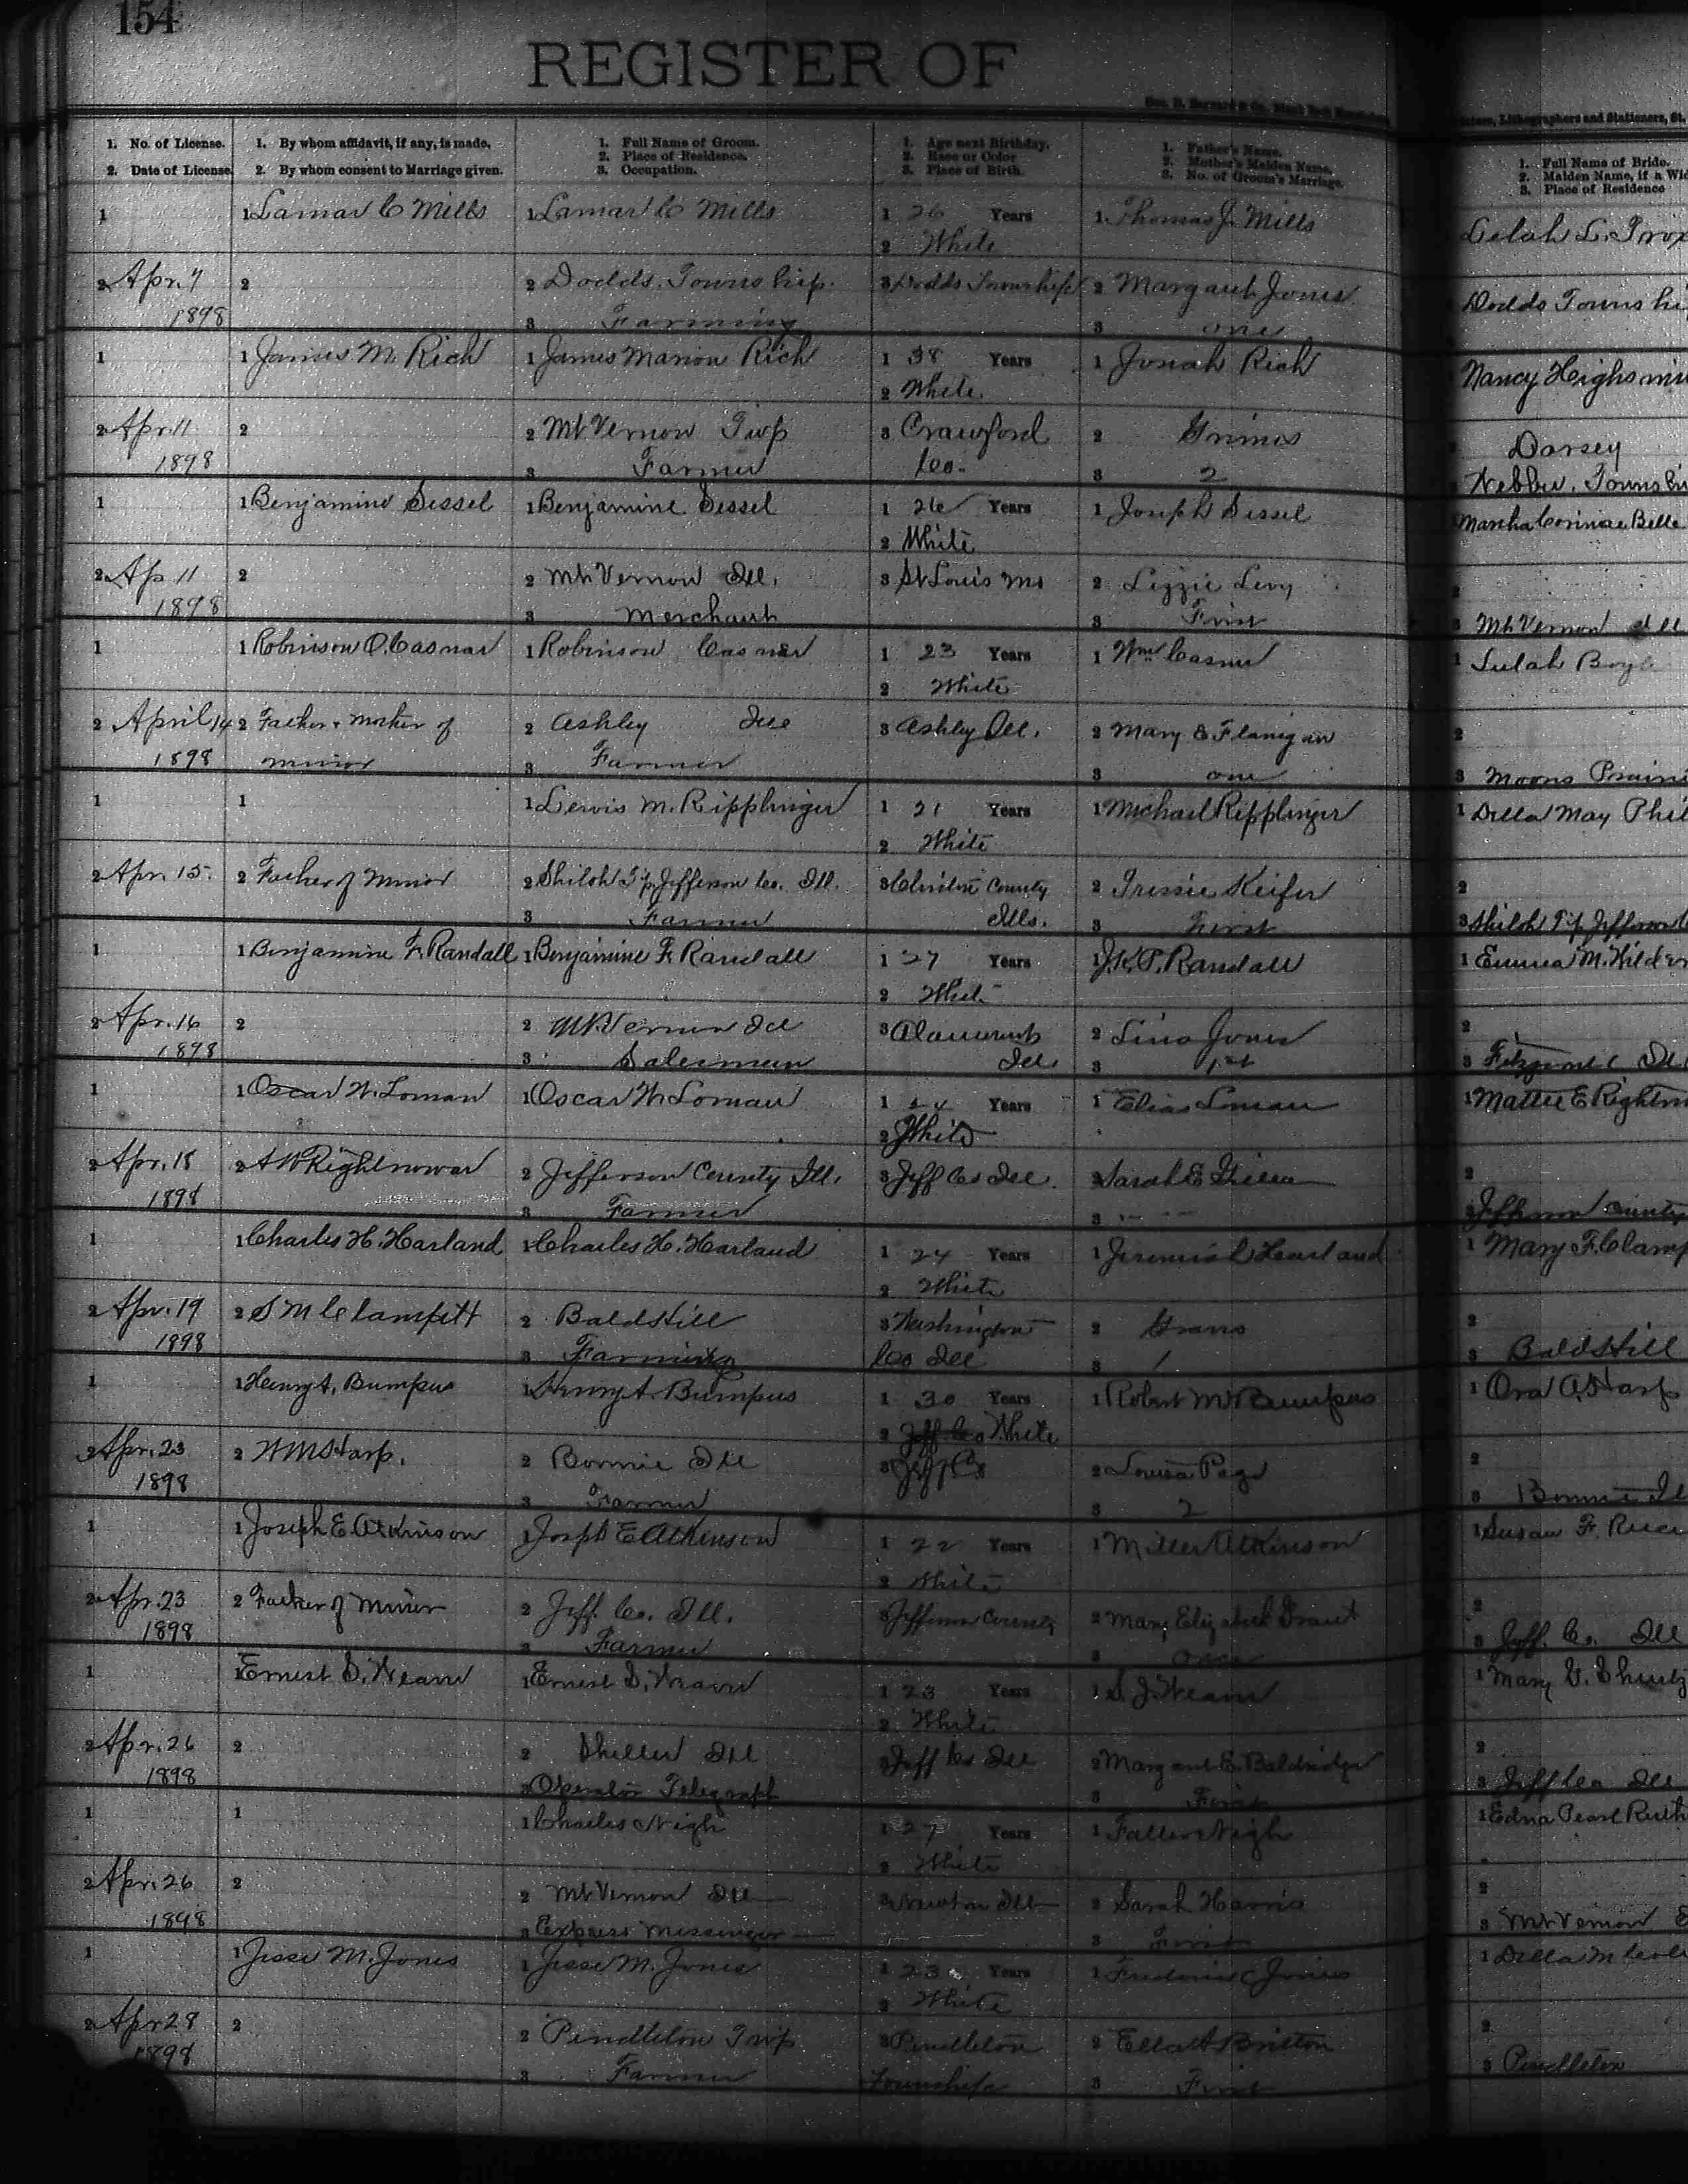 154
REGISTER OF
1. No. of License.
2. Date of License.
1. By whom affidavit, if any, is made.
2. By whom consent to Marriage given.
1. Full Name of Groom.
2. Place of Residence.
3. Occupation.
1. Age next Birthday.
2. Race or Color
3. Place of Birth.
1. Father's Name.
2. Mother's Maiden Name.
3. No. of Groom's Marriage.
1. Full Name of Bride.
2. Maiden Name, if a Wid
3. Place of Residence
1 1 Lamar C Mills 1 Lamar C Mills 1 26 Years 1 Thomas J. Mills Lelah L. Trox
2 White
2 Apr. 7 2 2 Dodds Township 3 Dodds Township 2 Margaret Jones Dodds Townshi
1898 3 Farming 3 one
1 1 James M. Rich 1 James Marion Rich 1 38 Years 1 Josiah Rich Nancy Highsmi
2 White
2 Apr. 11 2 2 Mt Vernon Twp 3 Crawford 2 Grimes Dorsey
1898 3 Farmer Co. 3 2 Webber Townshi
1 1 Benjamine Sessel 1 Benjamine Sessel 1 26 Years 1 Joseph Sessel Martha Corinne Belle
2 White
2 Ap 11 2 2 Mt Vernon Ill. 3 St Louis Mo 2 Lizzie Levy
1898 3 Merchant 3 First 3 Mt Vernon Ill
1 1 Robinson O. Casnar 1 Robinson Casner 1 23 Years 1 Wm Casner 1 Lulah Boyle
2 White
2 April 14 2 Father & Mother of 2 Ashley Ill 3 Ashley Ill. 2 Mary E Flanigan 2
1898 minor 3 Farmer 3 one 3 Moores Prairi
1 1 1 Lewis M. Ripplinger 1 21 Years 1 Michael Ripplinger 1 Della May Phil
2 White
2 Apr. 15. 2 Father of Minor 2 Shiloh Tp Jefferson Co. Ill. 3 Clinton County 2 Tressie Keifer 2
3 Farmer Ills. 3 First 3 Shiloh Tp. Jefferson
1 1 Benjamine F. Randall 1 Benjamine F. Randall 1 27 Years 1 J.K.P. Randall 1 Emma M. Wilder
2 White
2 Apr. 16 2 2 Mt Vernon Ill 3 Ill. 2 Jones 2
1898 3 Salesman 3 1st 3 Ill
1 1 Oscar W. Loman 1 Oscar W. Loman 1 24 Years 1 Elias Loman 1 Mattie E Rightn
2 White
2 Apr. 18 2 A W Rightnowar 2 Jefferson County Ill. 3 Jeff Co Ill. 2 Sarah E 2
1898 3 Farmer 3 3 Jefferson County
1 1 Charles H. Harland 1 Charles H. Harland 1 24 Years 1 Jeremiah Harland 1 Mary F. Clamp
2 White
2 Apr. 19 2 S M Clampitt 2 Bald Hill 3 Washington 2 2
1898 3 Farming Co Ill 3 1 3 Bald Hill
1 1 Henry A. Bumpus 1 Henry A. Bumpus 1 30 Years 1 Robert M Bumpus 1 Ora A. Harp
2 Jeff Co White
2 Apr. 23 2 W M Harp. 2 Bonnie Ill 3 Jeff Co 2 Louisa Page 2
1898 3 Farmer 3 2 3 Bonnie Il
1 1 Joseph E. Atkinson 1 Josph E Atkinson 1 22 Years 1 Miller Atkinson 1 Susan F.
2 White
2 Apr. 23 2 Father of Minor 2 Jeff. Co. Ill. 3 Jefferson County 2 Mary Elizabeth Grant 2
1898 3 Farmer 3 once 3 Jeff. Co. Ill
1 1 Ernest S. Hearn 1 Ernest S. Hearn 1 23 Years 1 S. J. Hearn 1 Mary V. Shurtz
2 White
2 Apr. 26 2 2 Sheller Ill 3 Jeff Co Ill 2 Margaret E. Baldridge 2
1898 3 Operator Telegraph 3 First 3 Jeff Co Ill
1 1 1 Charles Nigh 1 27 Years 1 Nigh 1 Edna Pearl Ruth
2 White
2 Apr. 26 2 2 Mt Vernon Ill 3 Newton Ill 2 Sarah Harris 2
1898 3 Express Messenger 3 First 3 Mt Vernon
1 1 Jesse M. Jones 1 Jesse M. Jones 1 23 Years 1 Frederic C Jones 1 Della M
2 White
2 Apr 28 2 2 Pendleton Twp 3 Pendleton 2 Ella A Britton 2
1898 3 Farmer Township 3 First 3 Pendleton